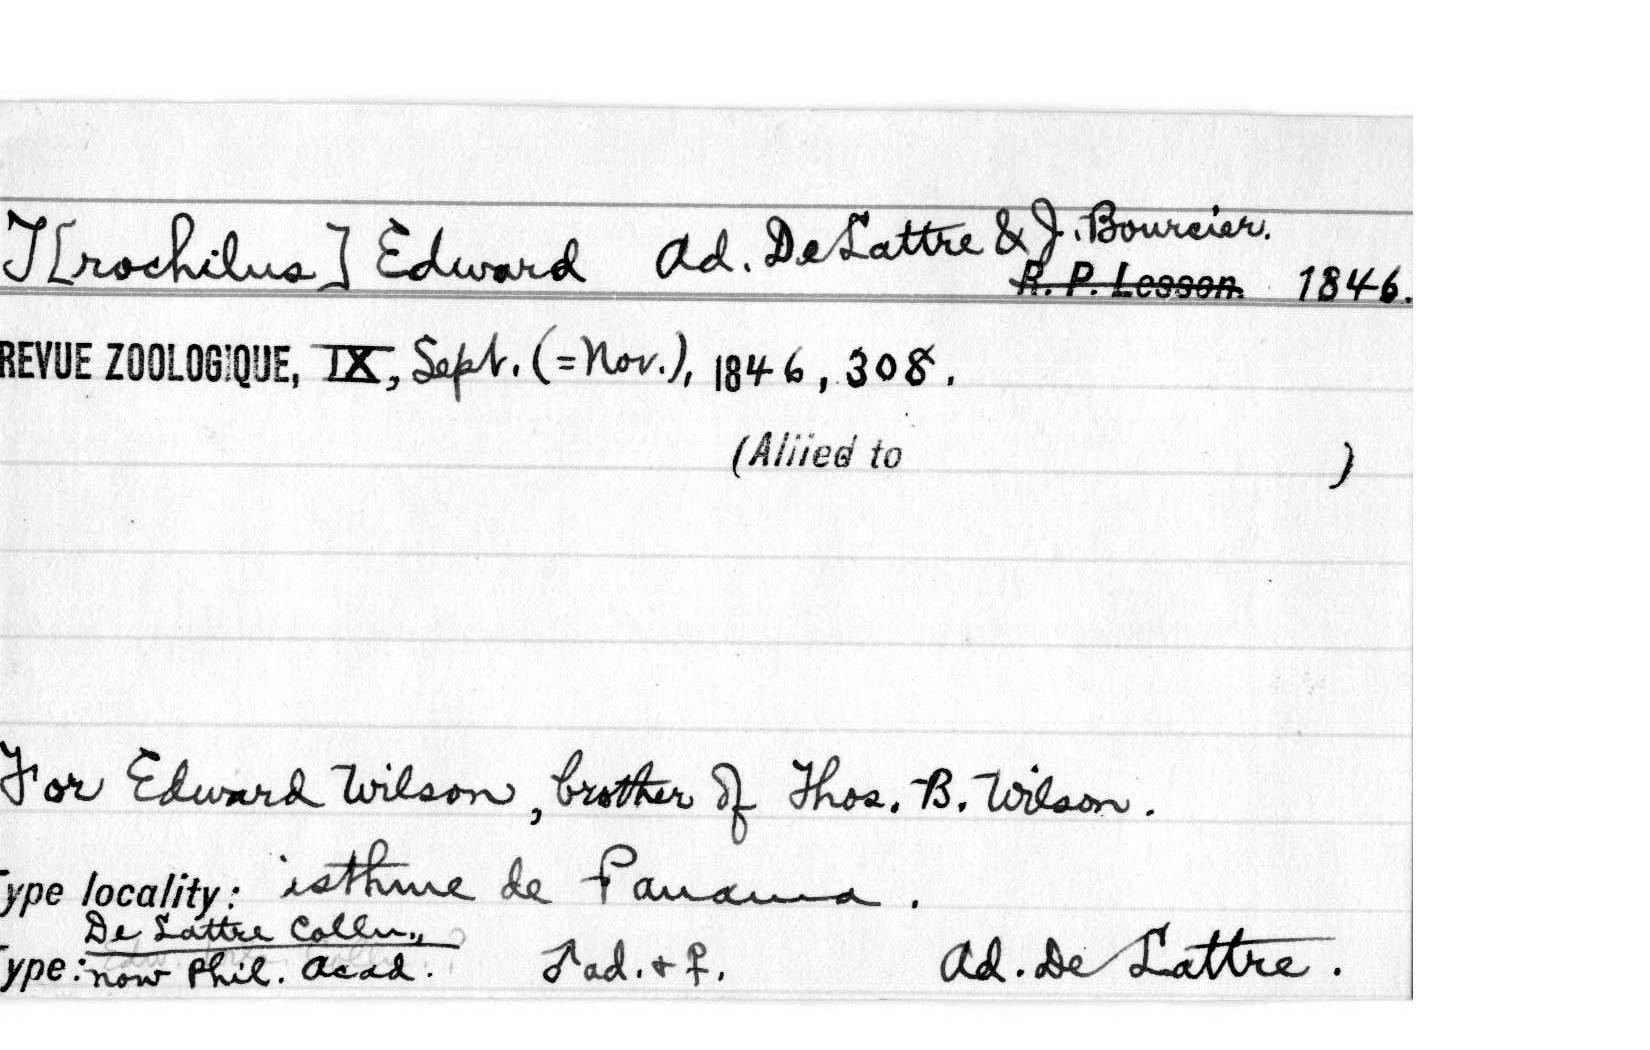 T[rochilus] Edward Ad. DeLattre & J. Bourcier.
R. P. Lesson. 1846.
REVUE ZOOLOGIQUE, IX, Sept. (=Nov.), 1846, 308.
(Allied to )
For Edward Wilson, brother of Thos. B. Wilson.
ype locality: isthme de Panama.
De Lattre Colln.,
ype: now Phil. Acad. ♂ad. & ♀. Ad. De Lattre.